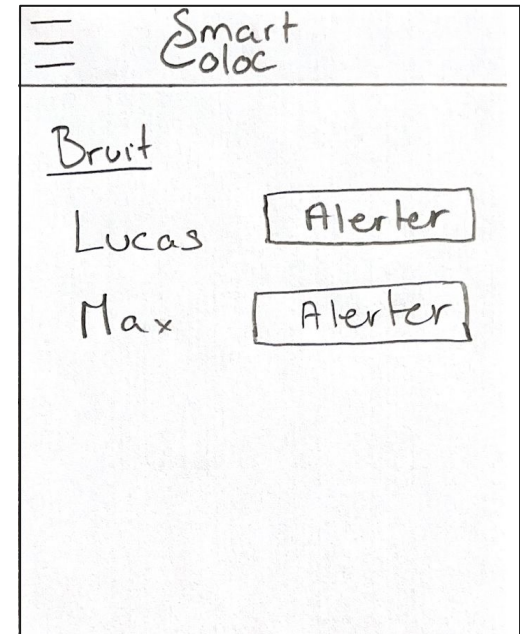 Smart
Coloc
Bruit
Lucas Alerter
Max Alerter